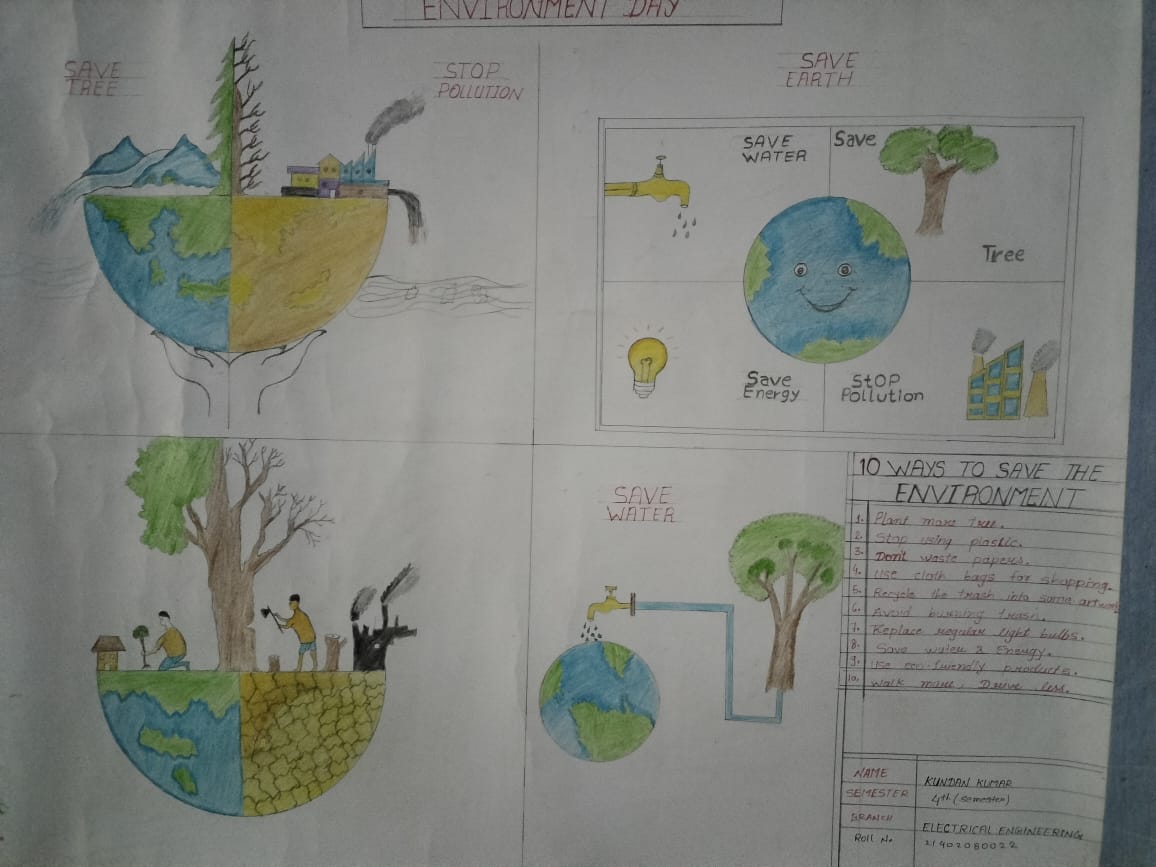 ENVIRONMENT DAY
SAVE
TREE
STOP
POLLUTION
SAVE
EARTH
SAVE
WATER
Save
Tree
Save
Energy
StOP
Pollution
SAVE
WATER
10 WAYS TO SAVE THE
ENVIRONMENT
1. Plant more tree.
2. Stop using plastic.
3. Don't waste papers.
4. Use cloth bags for shopping.
5. Recycle the trash into some artwork
6. Avoid burning trash.
7. Replace regular light bulbs.
8. Save water & Energy.
9. Use eco-friendly products.
10. Walk more, Drive less.
NAME KUNDAN KUMAR
SEMESTER 4th (semester)
BRANCH ELECTRICAL ENGINEERING
Roll No. 21402080022